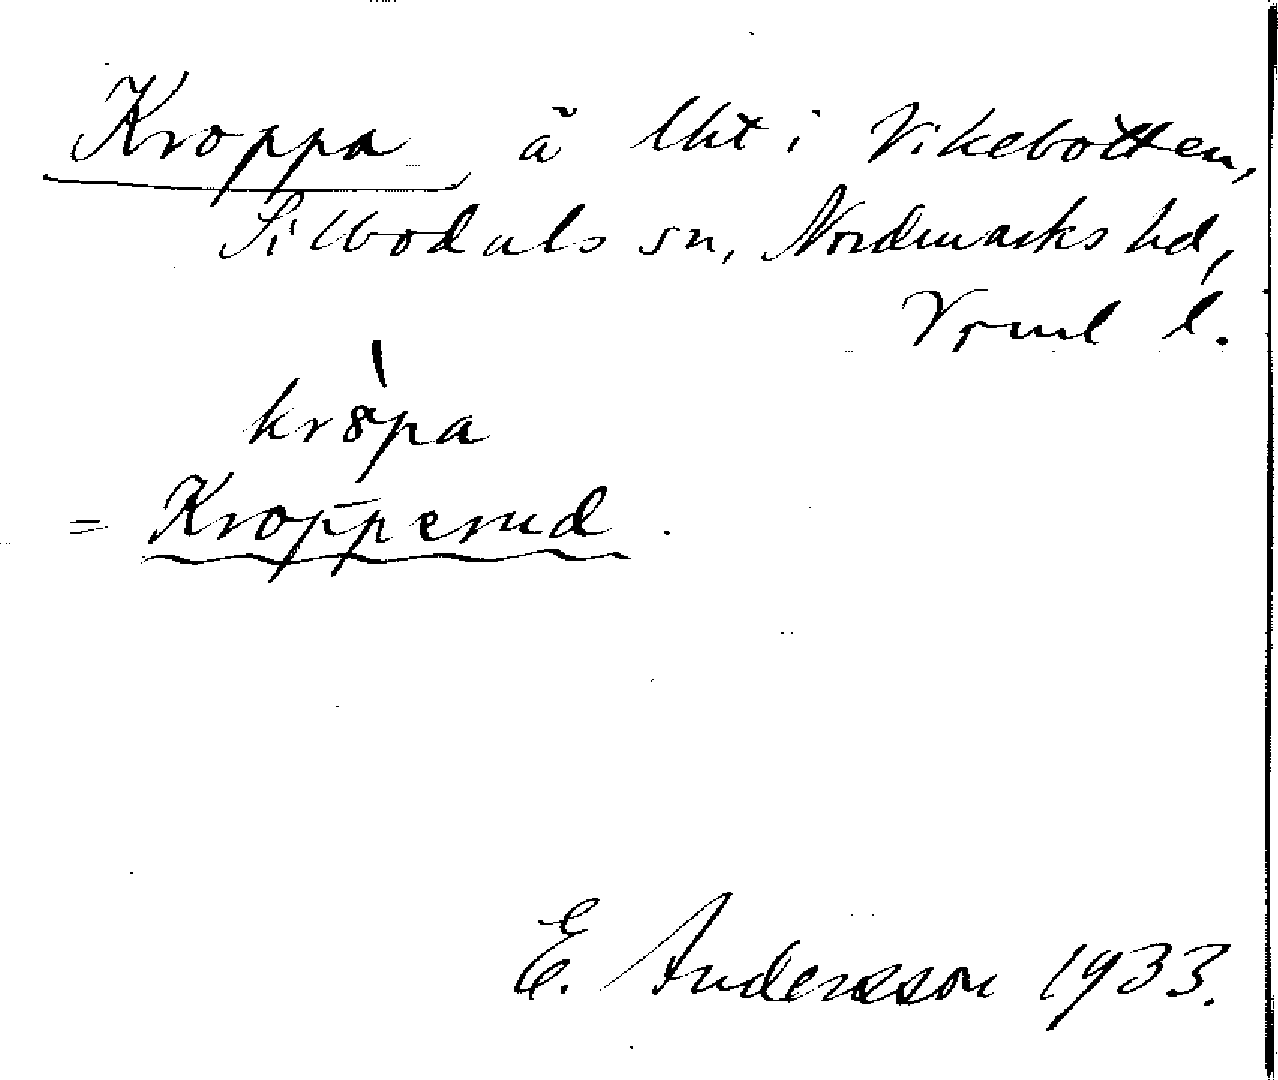 Kroppa, å lht i Vikebotten,
Silbodals sn, Nordmarks hd,
Vrml l.
kr8pa
= Kropperud.
E. Andersson 1933.